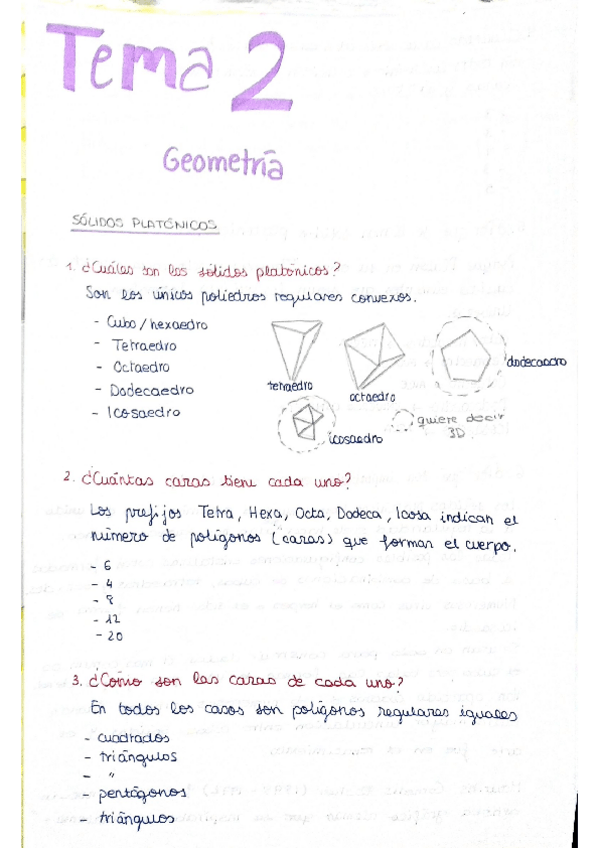 Tema 2
Geometría
SÓLIDOS PLATÓNICOS
1. ¿Cuáles son los sólidos platónicos?
Son los únicos poliedros regulares convexos.
- Cubo / hexaedro
- Tetraedro
- Octaedro
- Dodecaedro
- Icosaedro
tetraedro
octaedro
dodecaedro
icosaedro
quiere decir
3D
2. ¿Cuántas caras tiene cada uno?
Los prefijos Tetra, Hexa, Octa, Dodeca, Icosa indican el
número de polígonos (caras) que forman el cuerpo.
- 6
- 4
- 8
- 12
- 20
3. ¿Cómo son las caras de cada uno?
En todos los casos son polígonos regulares iguales
- cuadrados
- triángulos
- "
- pentágonos
- triángulos